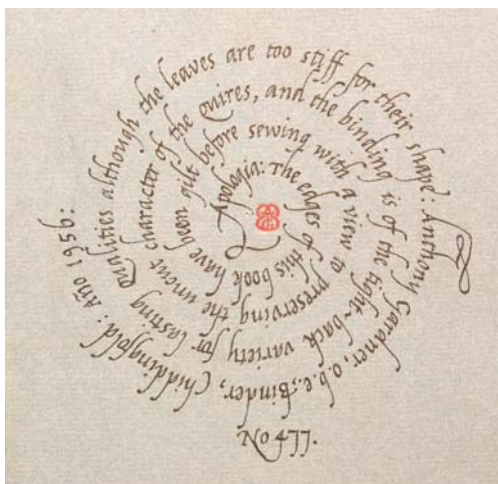 Apologia: The edges of this book have been gilt before sewing with a view to preserving the uncut character of the quires, and the binding is of the tight-back variety for lasting qualities although the leaves are too stiff for their shape: Anthony Gardner, o.b.e., Binder, Chiddingfold: Año 1956:
No 477.